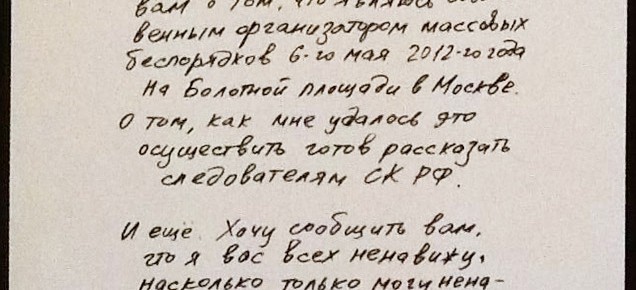 вам о том, что являюсь
венным организатором массовых
беспорядков 6-го мая 2012-го года
на Болотной площади в Москве.
О том, как мне удалось это
осуществить готов рассказать
следователям СК РФ.
И ещё. Хочу сообщить вам,
что я вас всех ненавижу,
насколько только могу нена-